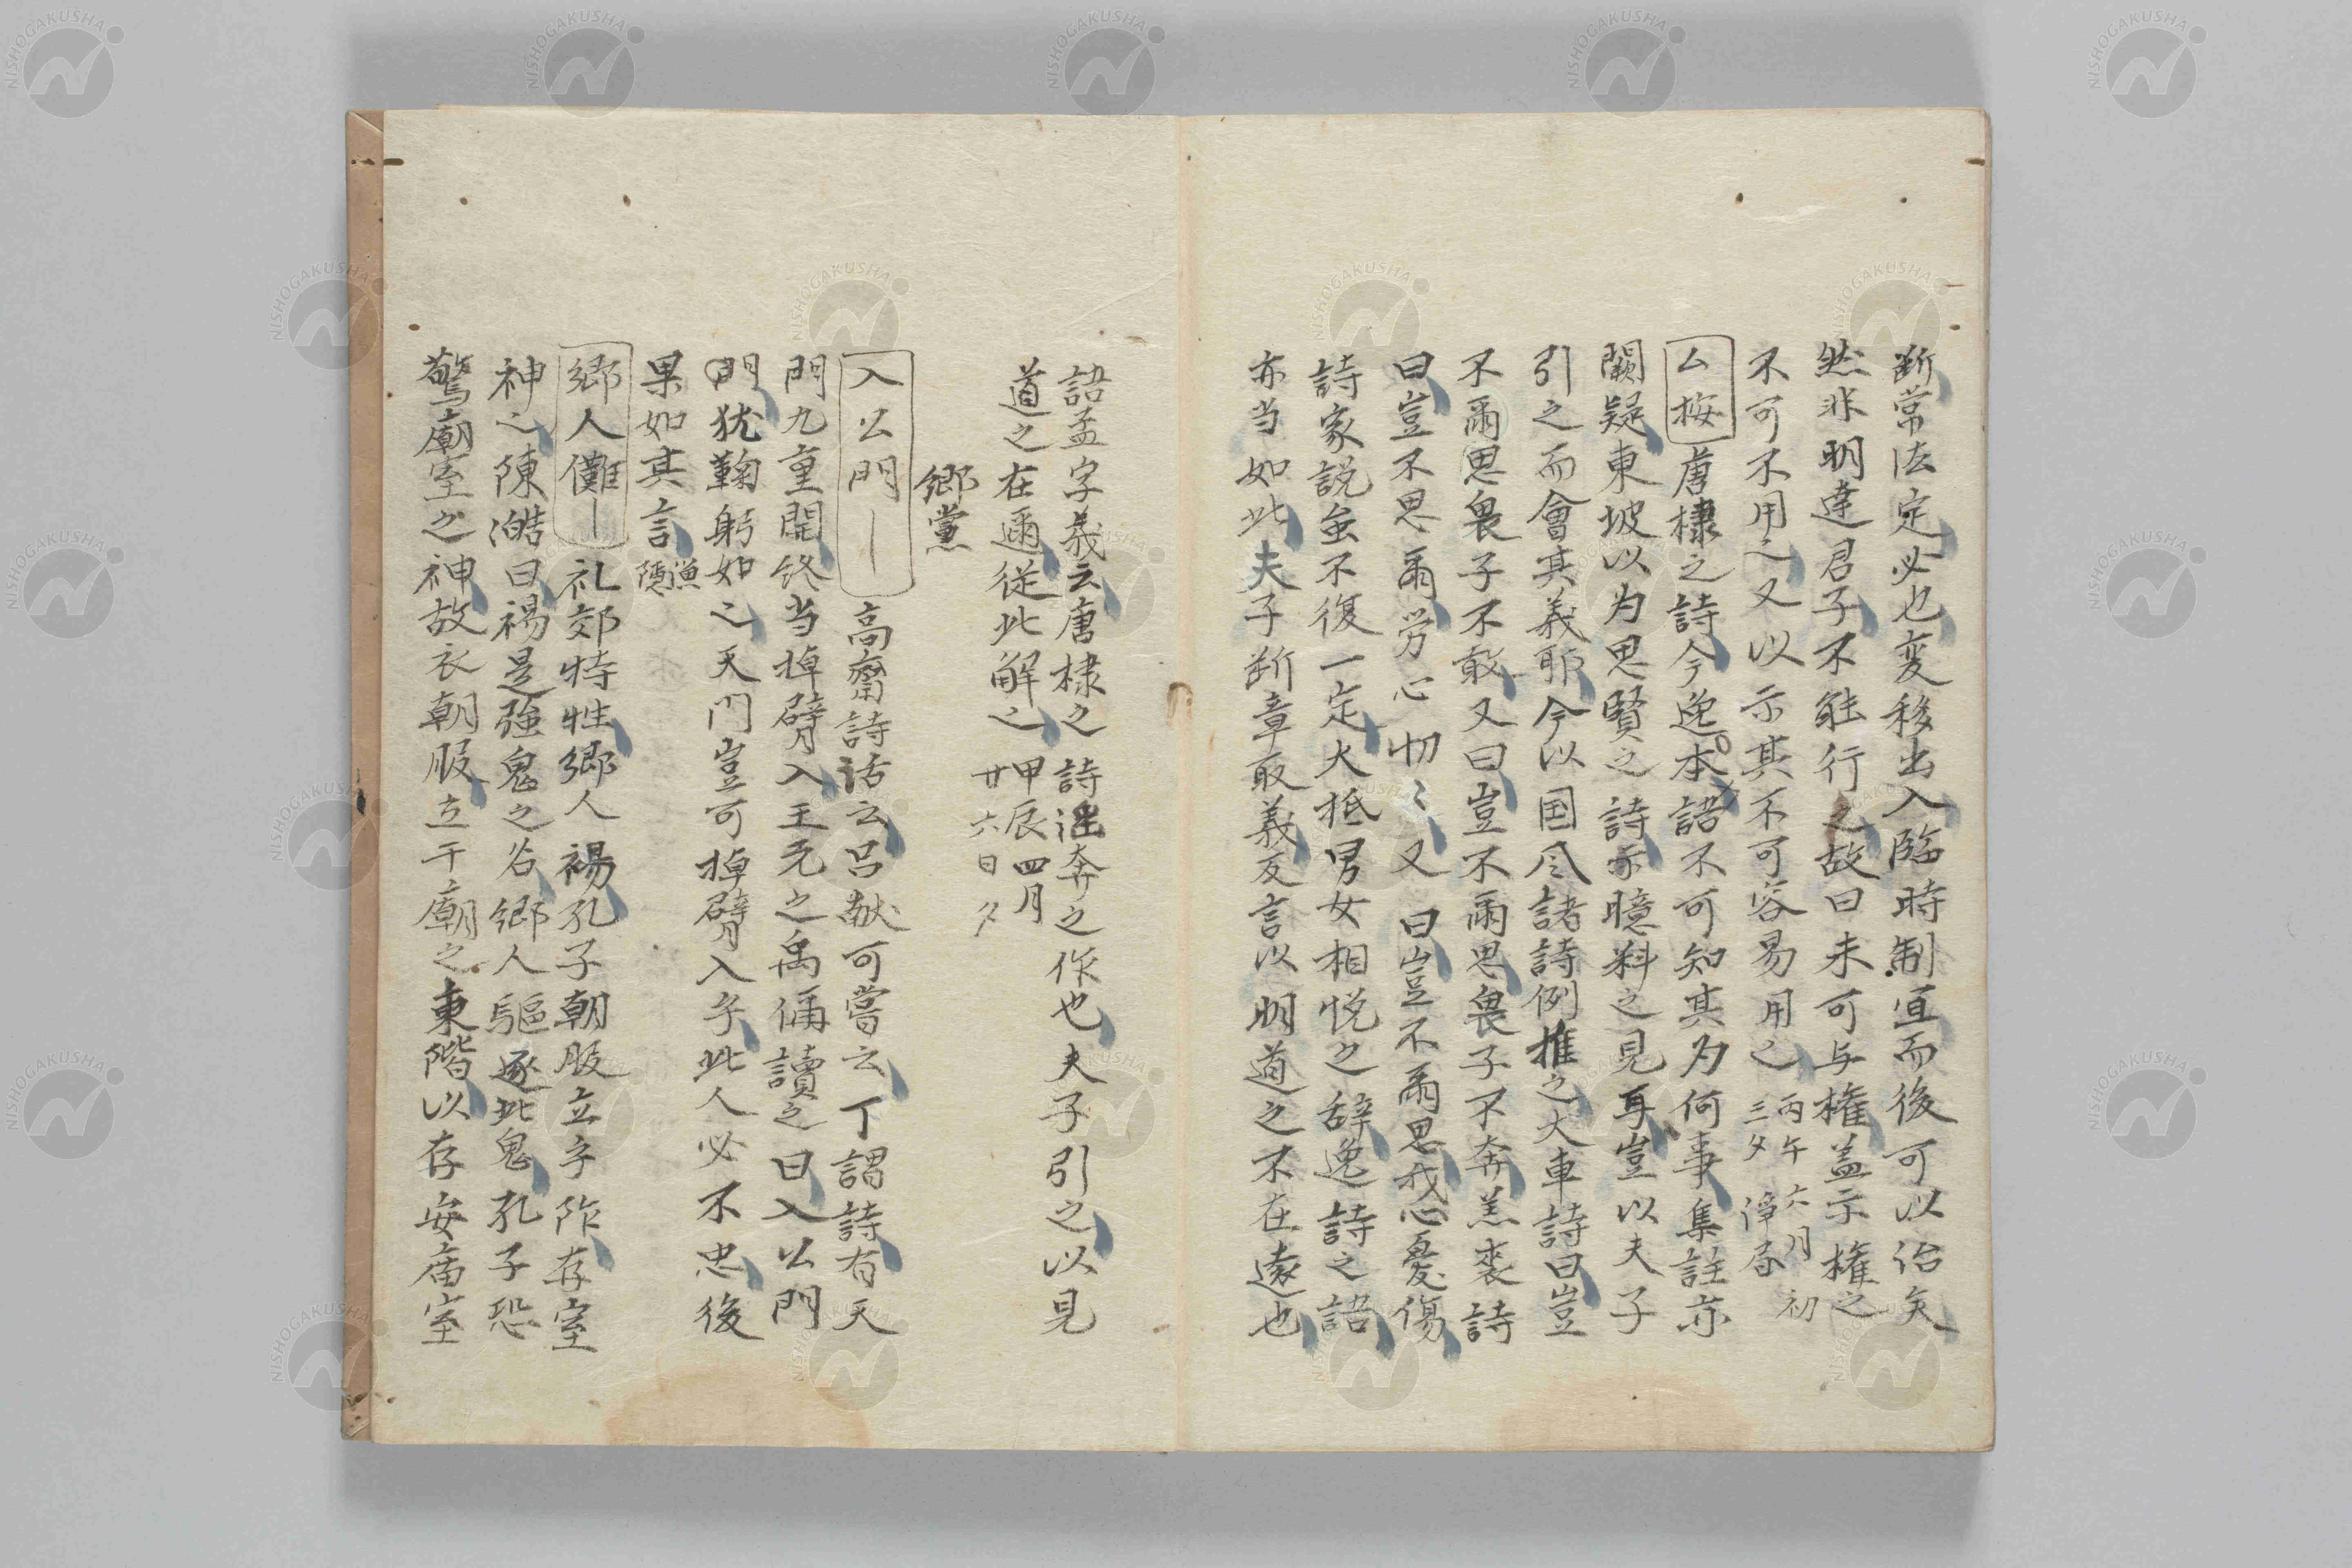 断常法定必也変移出入臨時制宜而後可以治矣
然非明達君子不能行之故曰未可与権蓋示権之
不可不用之又以示其不可容易用之丙午六月初
三夕得
厶按唐棣之詩今逸本語不可知其为何事集註亦
闕疑東坡以为思賢之詩亦臆料之見耳豈以夫子
引之而會其義耶今以国风諸詩例推之大車詩曰豈
不爾思畏子不敢又曰豈不爾思畏子不奔羔裘詩
曰豈不思爾労心忉〻又曰豈不爾思我心憂傷
詩家説虽不復一定大抵男女相悦之辞逸詩之語
亦当如此夫子断章取義反言以明道之不在遠也
語孟字義云唐棣之詩淫奔之作也夫子引之以見
道之在邇従此解之甲辰四月
廿六日夕
郷黨
入公門｜高齋詩话云呂献可嘗云丁謂詩有天
門九重開終当掉臂入王元之禹偁讀之曰入公門
門犹鞠躬如之天門豈可掉臂入乎此人必不忠後
果如其言漁
隠
郷人儺｜礼郊特牲郷人裼孔子朝服立于阼存室
神之陳澔曰裼是強鬼之名郷人駆逐此鬼孔子恐
驚廟室之神故衣朝服立于廟之東階以存安庙室
NISHOGAKUSHA